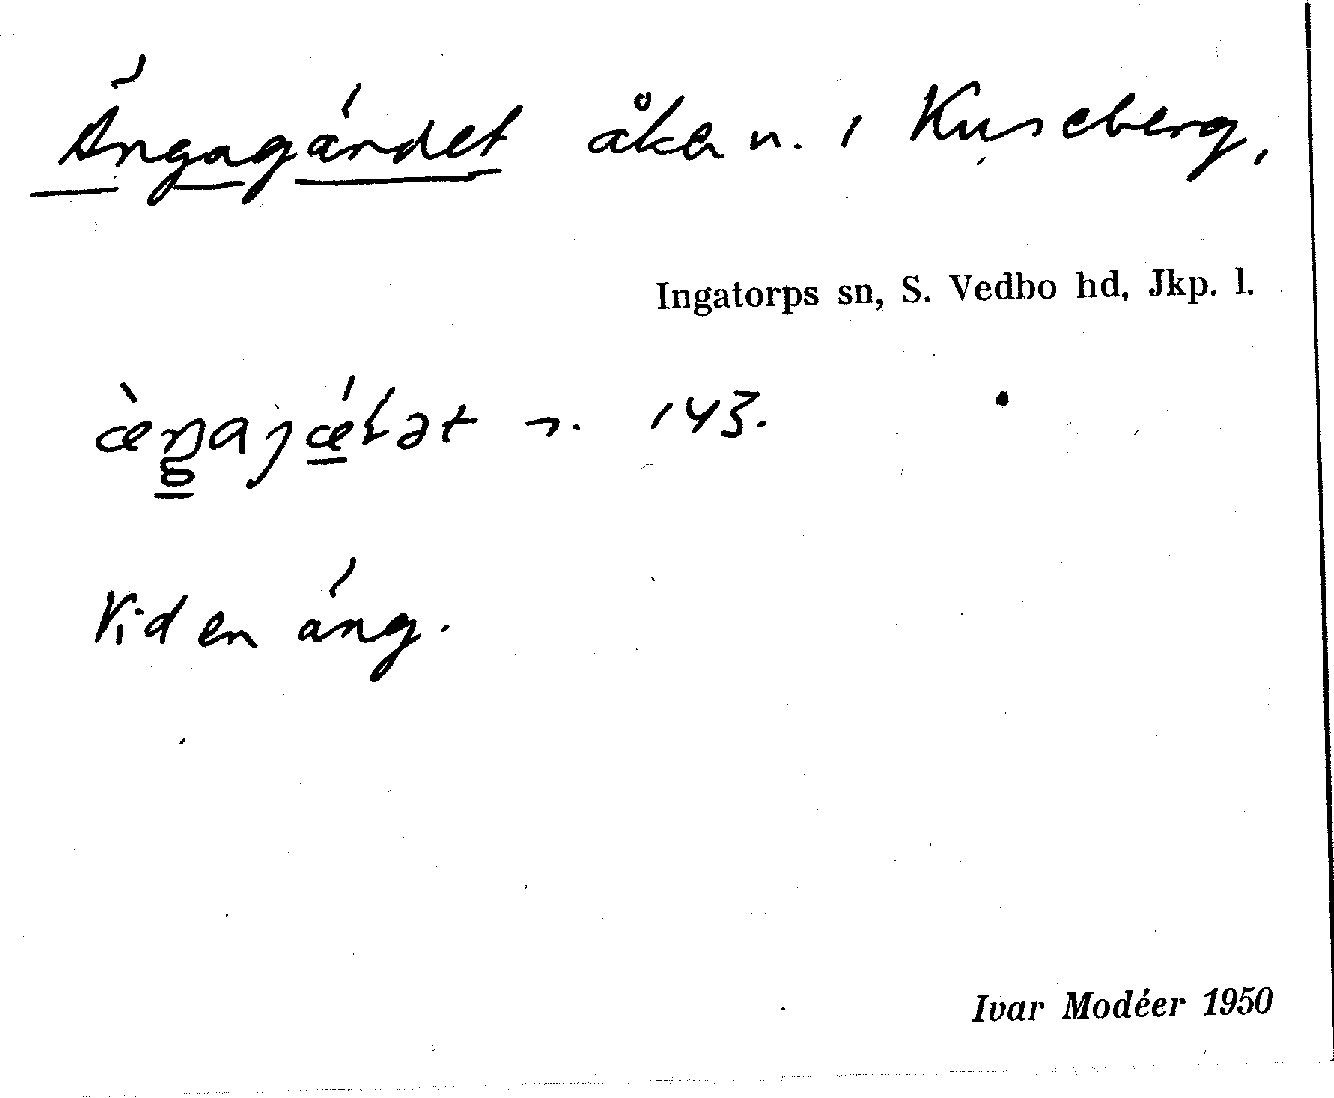 Ängagärdet åker n. i Kuseberg,
Ingatorps sn, S. Vedbo hd, Jkp. l.
143.
Vid en äng.
Ivar Modéer 1950